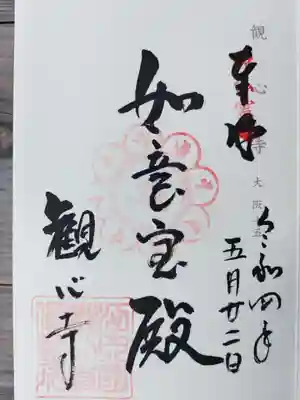 観心寺 大阪
奉拝
令和四年
五月廿二日
如意宝殿
観心寺